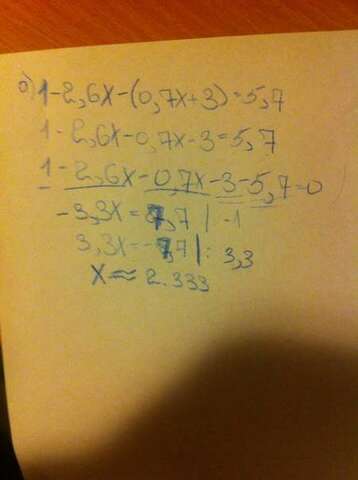 б) 1-2,6x-(0,7x+3)=5,7
1-2,6x-0,7x-3=5,7
1-2,6x-0,7x-3-5,7=0
-3,3x=7,7 | -1
3,3x=-7,7 | : 3,3
x≈2.333